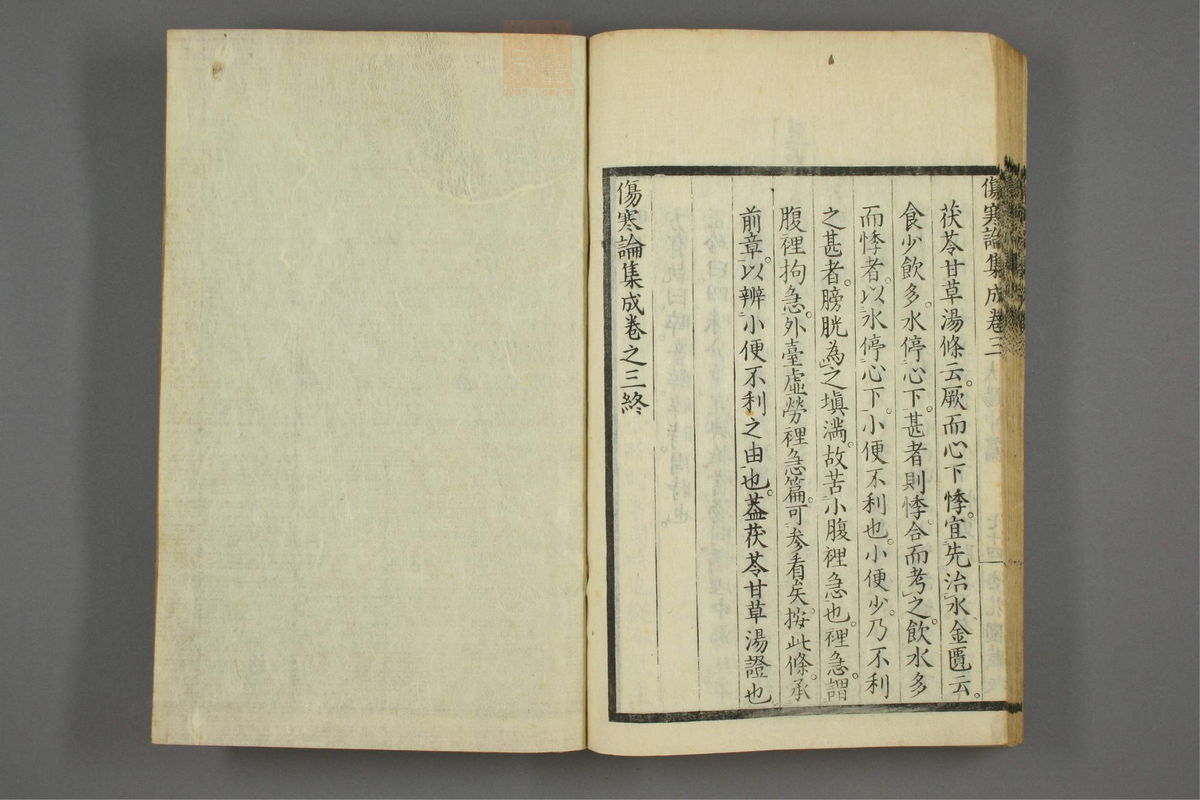 傷寒論集成卷三
茯苓甘草湯條云。厥而心下悸。宜先治水金匱云。
食少飲多。水停心下。甚者則悸。合而考之。飲水多
而悸者。以水停心下。小便不利也。小便少。乃不利
之甚者。膀胱為之填滿。故苦小腹裡急也。裡急。謂
腹裡拘急。外臺虛勞裡急篇。可參看矣。按此條。承
前章。以辨小便不利之由也。葢茯苓甘草湯證也
傷寒論集成卷之三終